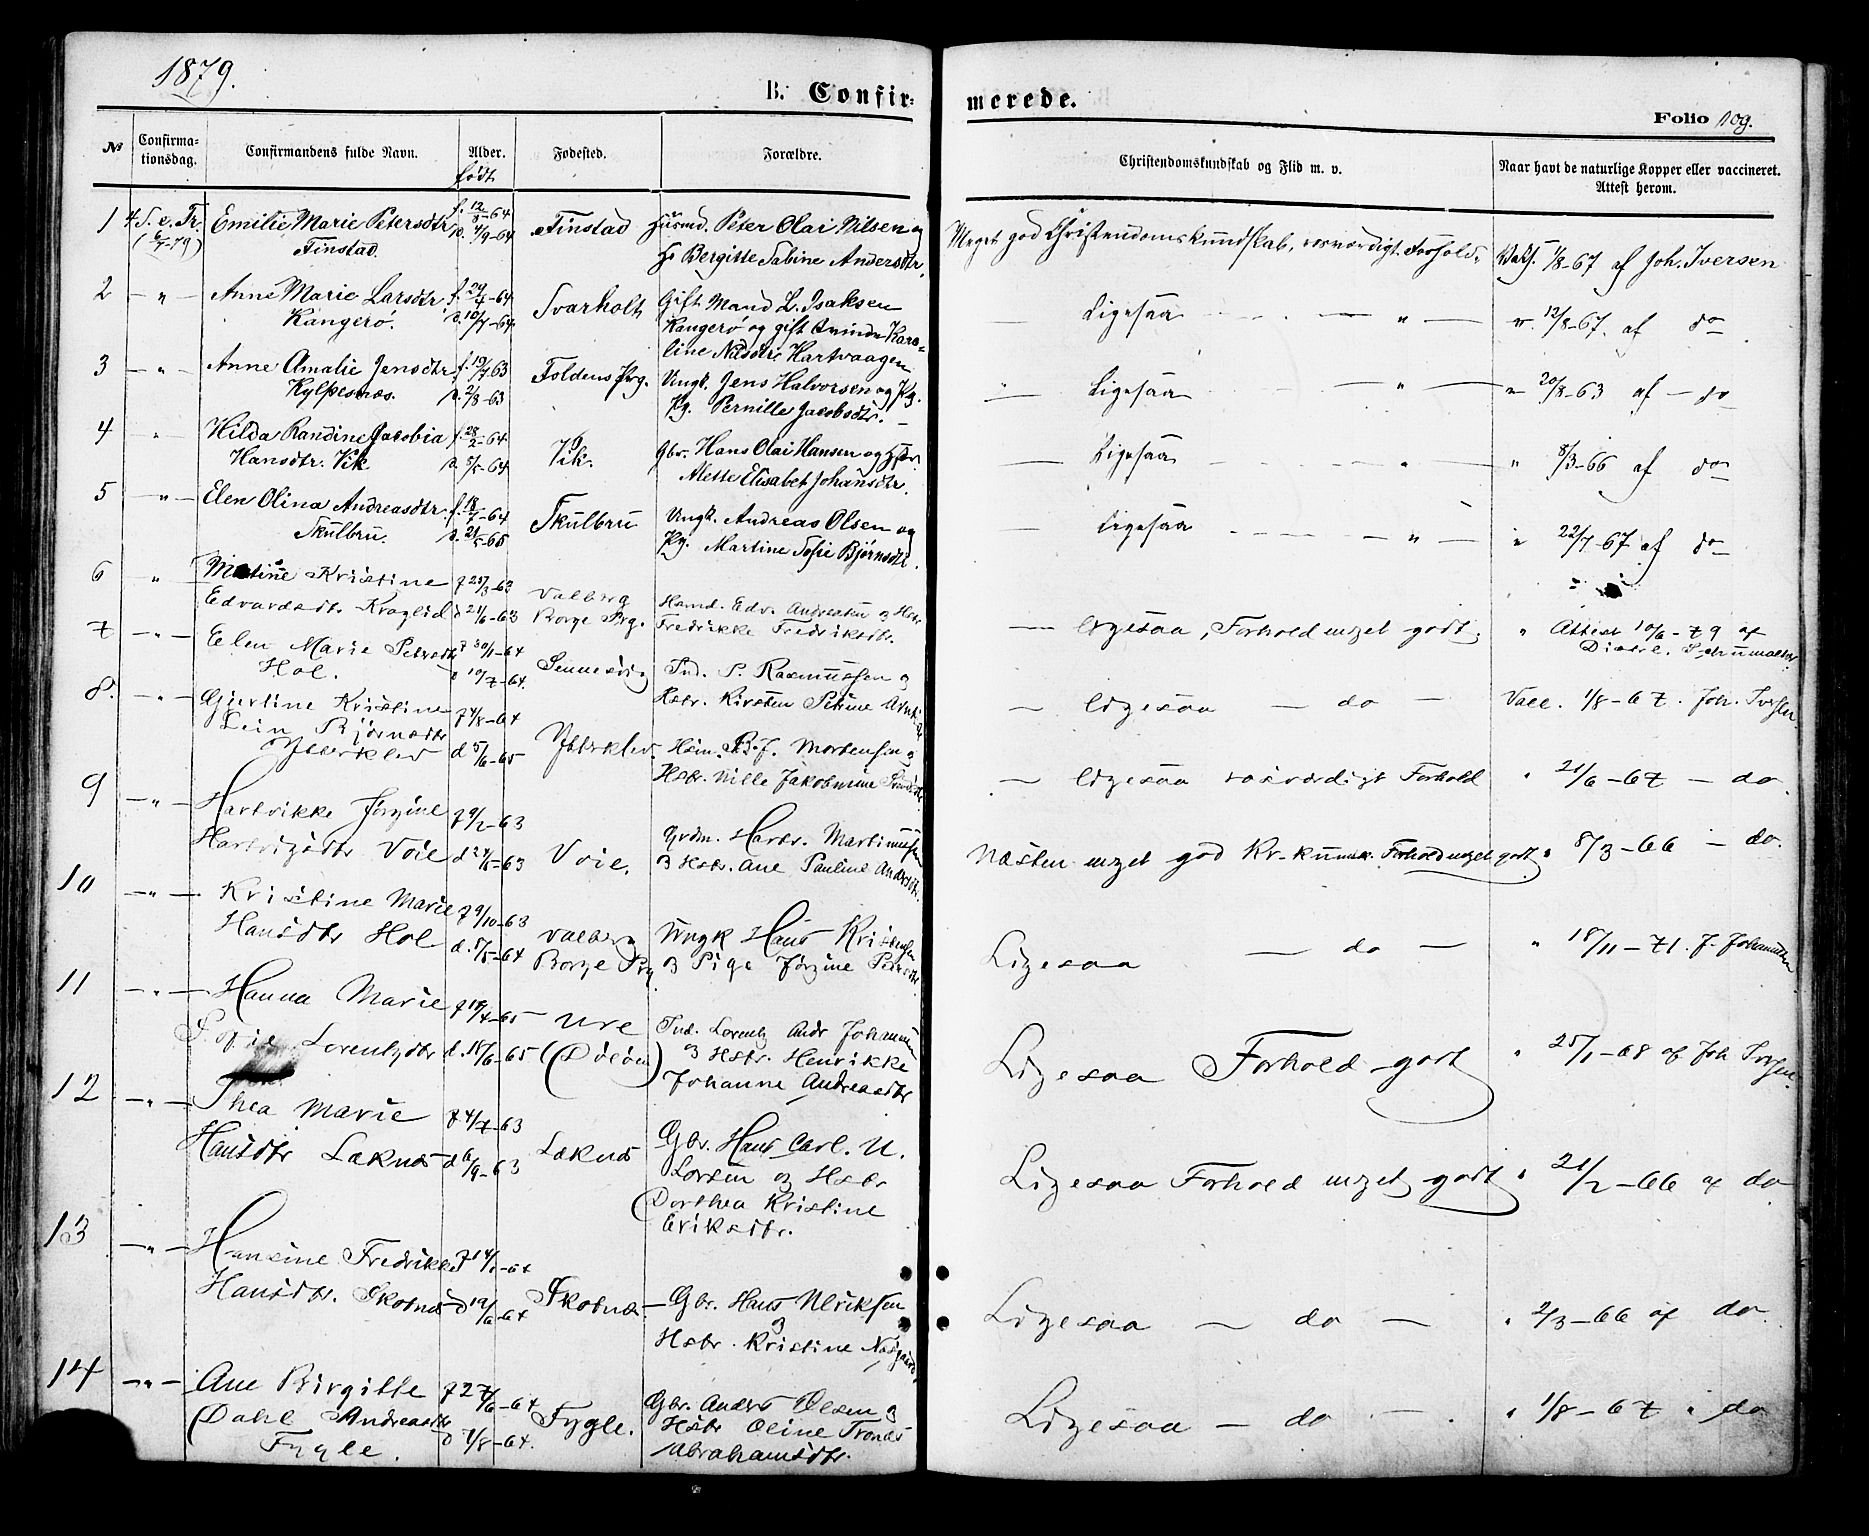 1879.
B. Confir-
merede.
Folio 109.
№
Confirma-
tionsdag.
Confirmandens fulde Navn.
Alder.
født
Fødested.
Forældre.
Christendomskundskab og Flid m. v.
Naar havt de naturlige Kopper eller vaccineret.
Attest herom.
1 4 S. e. Tr. Emilie Marie Petersdtr f. 12/8-64 Finstad Husmd. Peter Olai Nilsen og
(6/7-79) Finstad. d. 4/9-64 Bergitte Sabine Andersdtr.
Meget god Christendomskundskab, rosværdigt Forhold. Vaks. 1/8-67 af Joh. Iversen
2 - " - Anne Marie Larsdtr f. 29/4-64 Svarholt Gift Mand L. Isaksen
Kangerø. d. 10/7-64 Kangerø og gift Kvinde Karo-
line Nilsdtr Hartvaagen
- Ligesaa - " - v. 12/8-67. af do
3 - " - Anne Amalie Jensdtr f. 19/7-63 Foldens Prg. Ungk. Jens Halvorsen og Pg.
Kylpesnæs. d. 2/8-63 Pg. Pernille Jacobsdtr.
" Ligesaa - " - " 20/8-63 af - do
4 " Hilda Randine Jacobia f. 28/2-64 Vik. Gbr. Hans Olai Hansen og Hstr.
Hansdtr. Vik d. 5/5-64 Mette Elisabet Johansdtr.
- Ligesaa " - " 8/3-66 af do
5 - " - Elen Olina Andreasdtr f. 18/7-64 Skulbru Ungk. Andreas Olsen og
Skulbru. d. 21/5-65 Pg. Martine Sofie Bjørnsdtr.
- Ligesaa - " - " 22/7-67 af do
6 " Kristine f 25/3-63 Valberg
Edvardsdtr Kraglid d 21/6-63 Borge Prg. Hsmd. Edv. Andreasen og Hstr.
Fredrikke Fredriksdtr.
- ligesaa, Forhold meget godt. " Attest 10/6-79 af
Distrl.
7 - " - Elen Marie Petersdtr f 30/1-64 Sennesvig Ind. P. Rasmussen og
Hol. d 10/7-64. Hstr. Kirsten Petrine
- ligesaa - do - Vacc. 1/8-67. Joh. Iversen
8. - " - Gjertine Kristine f 4/8-64
Lein Bjørnsdtr
Ytterklev d 5/6-65 Ytterklev. Hsm. B. J. Mortensen og
Hstr. Nille Jakobmine
- ligesaa rosværdigt Forhold " 21/6-67 - do.
9 - " - Hartvikke Jørgine f 9/2-63
Hartvigsdtr Voie d 24/5-63 Voie. Grdm. Hartv. Martinussen
og Hstr. Ane Pauline Andersdtr.
Næsten meget god Kr.kundsk. Forhold meget godt. " 8/3-66 - do.
10 - " - Kristine Marie f 9/10-63
Hansdtr Hol d. 5/5-64 Valberg
Borge Prg. Ungk Hans Kristensen
og Pige Jørgine Pedersdtr
Ligesaa - do - " 18/11-71. J. Johannesen
11 - " - Hanna Marie f 19/4-65 Ure
Sofie Lorentzdtr d. 18/6-65 (Døløen) Ind. Lorentz Andr Johannesen
og Hstr. Henrikke
Johanne Andreasdtr
Ligesaa Forhold godt " 25/1-68 af Joh Iversen.
12 - " - Thea Marie f 4/7-63
Hansdtr Leknes d 6/9-63 Leknes Gbr. Hans Carl. N.
Larsen og Hstr
Dorthea Kristine
Eriksdtr.
Ligesaa Forhold meget godt " 21/2-66 af do
13 - " - Hansine Fredrikke f 14/1-64
Hansdtr. Skotnes d 19/6-64 Skotnes - Gbr. Hans Ulriksen
og
Hstr. Kristine
Ligesaa - do - " 2/3-66 af do.
14 - " - Ane Birgitte f 27/6-64
Dahl Andreasdtr d 7/8-64. Fygle. Gbr. Anders Olsen og
Fygle. Hstr Oline
Abrahamsdtr.
Ligesaa - do - . " 1/8-67 " do